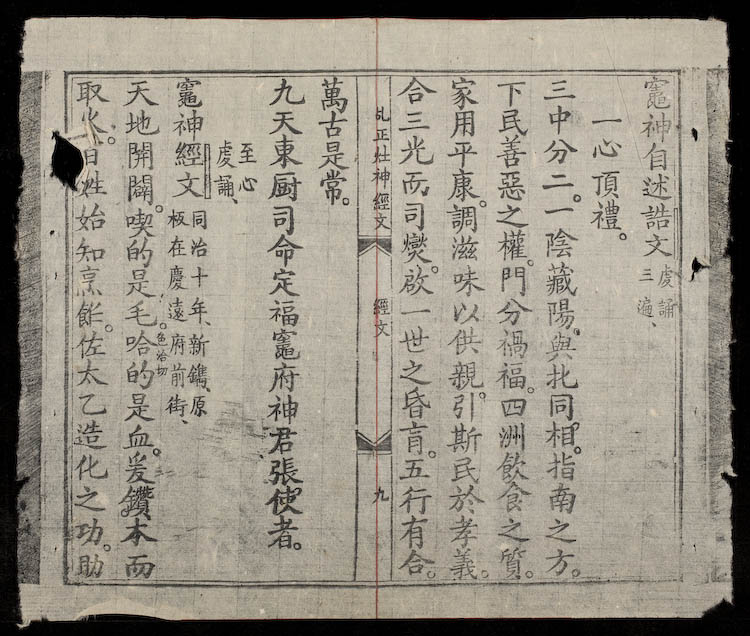 竈神自述誥文虔誦三遍、
一心頂禮。
三中分二。一陰藏陽。與北同相。指南之方。
下民善惡之權。門分禍福。四洲飲食之質。
家用平康。調滋味以供親。引斯民於孝義。
合三光而司爕。啟一世之昏肓。五行有合。
乩正灶神經文 經文 九
萬古是常。
九天東厨司命定福竈府神君張使者。
至心虔誦、
竈神經文 同治十年、新鐫、原板在慶遠府前街、
天地開闢。喫的是毛。哈色洽切的是血。爰鑽本而
取火。百姓始知烹飪。佐太乙造化之功。助